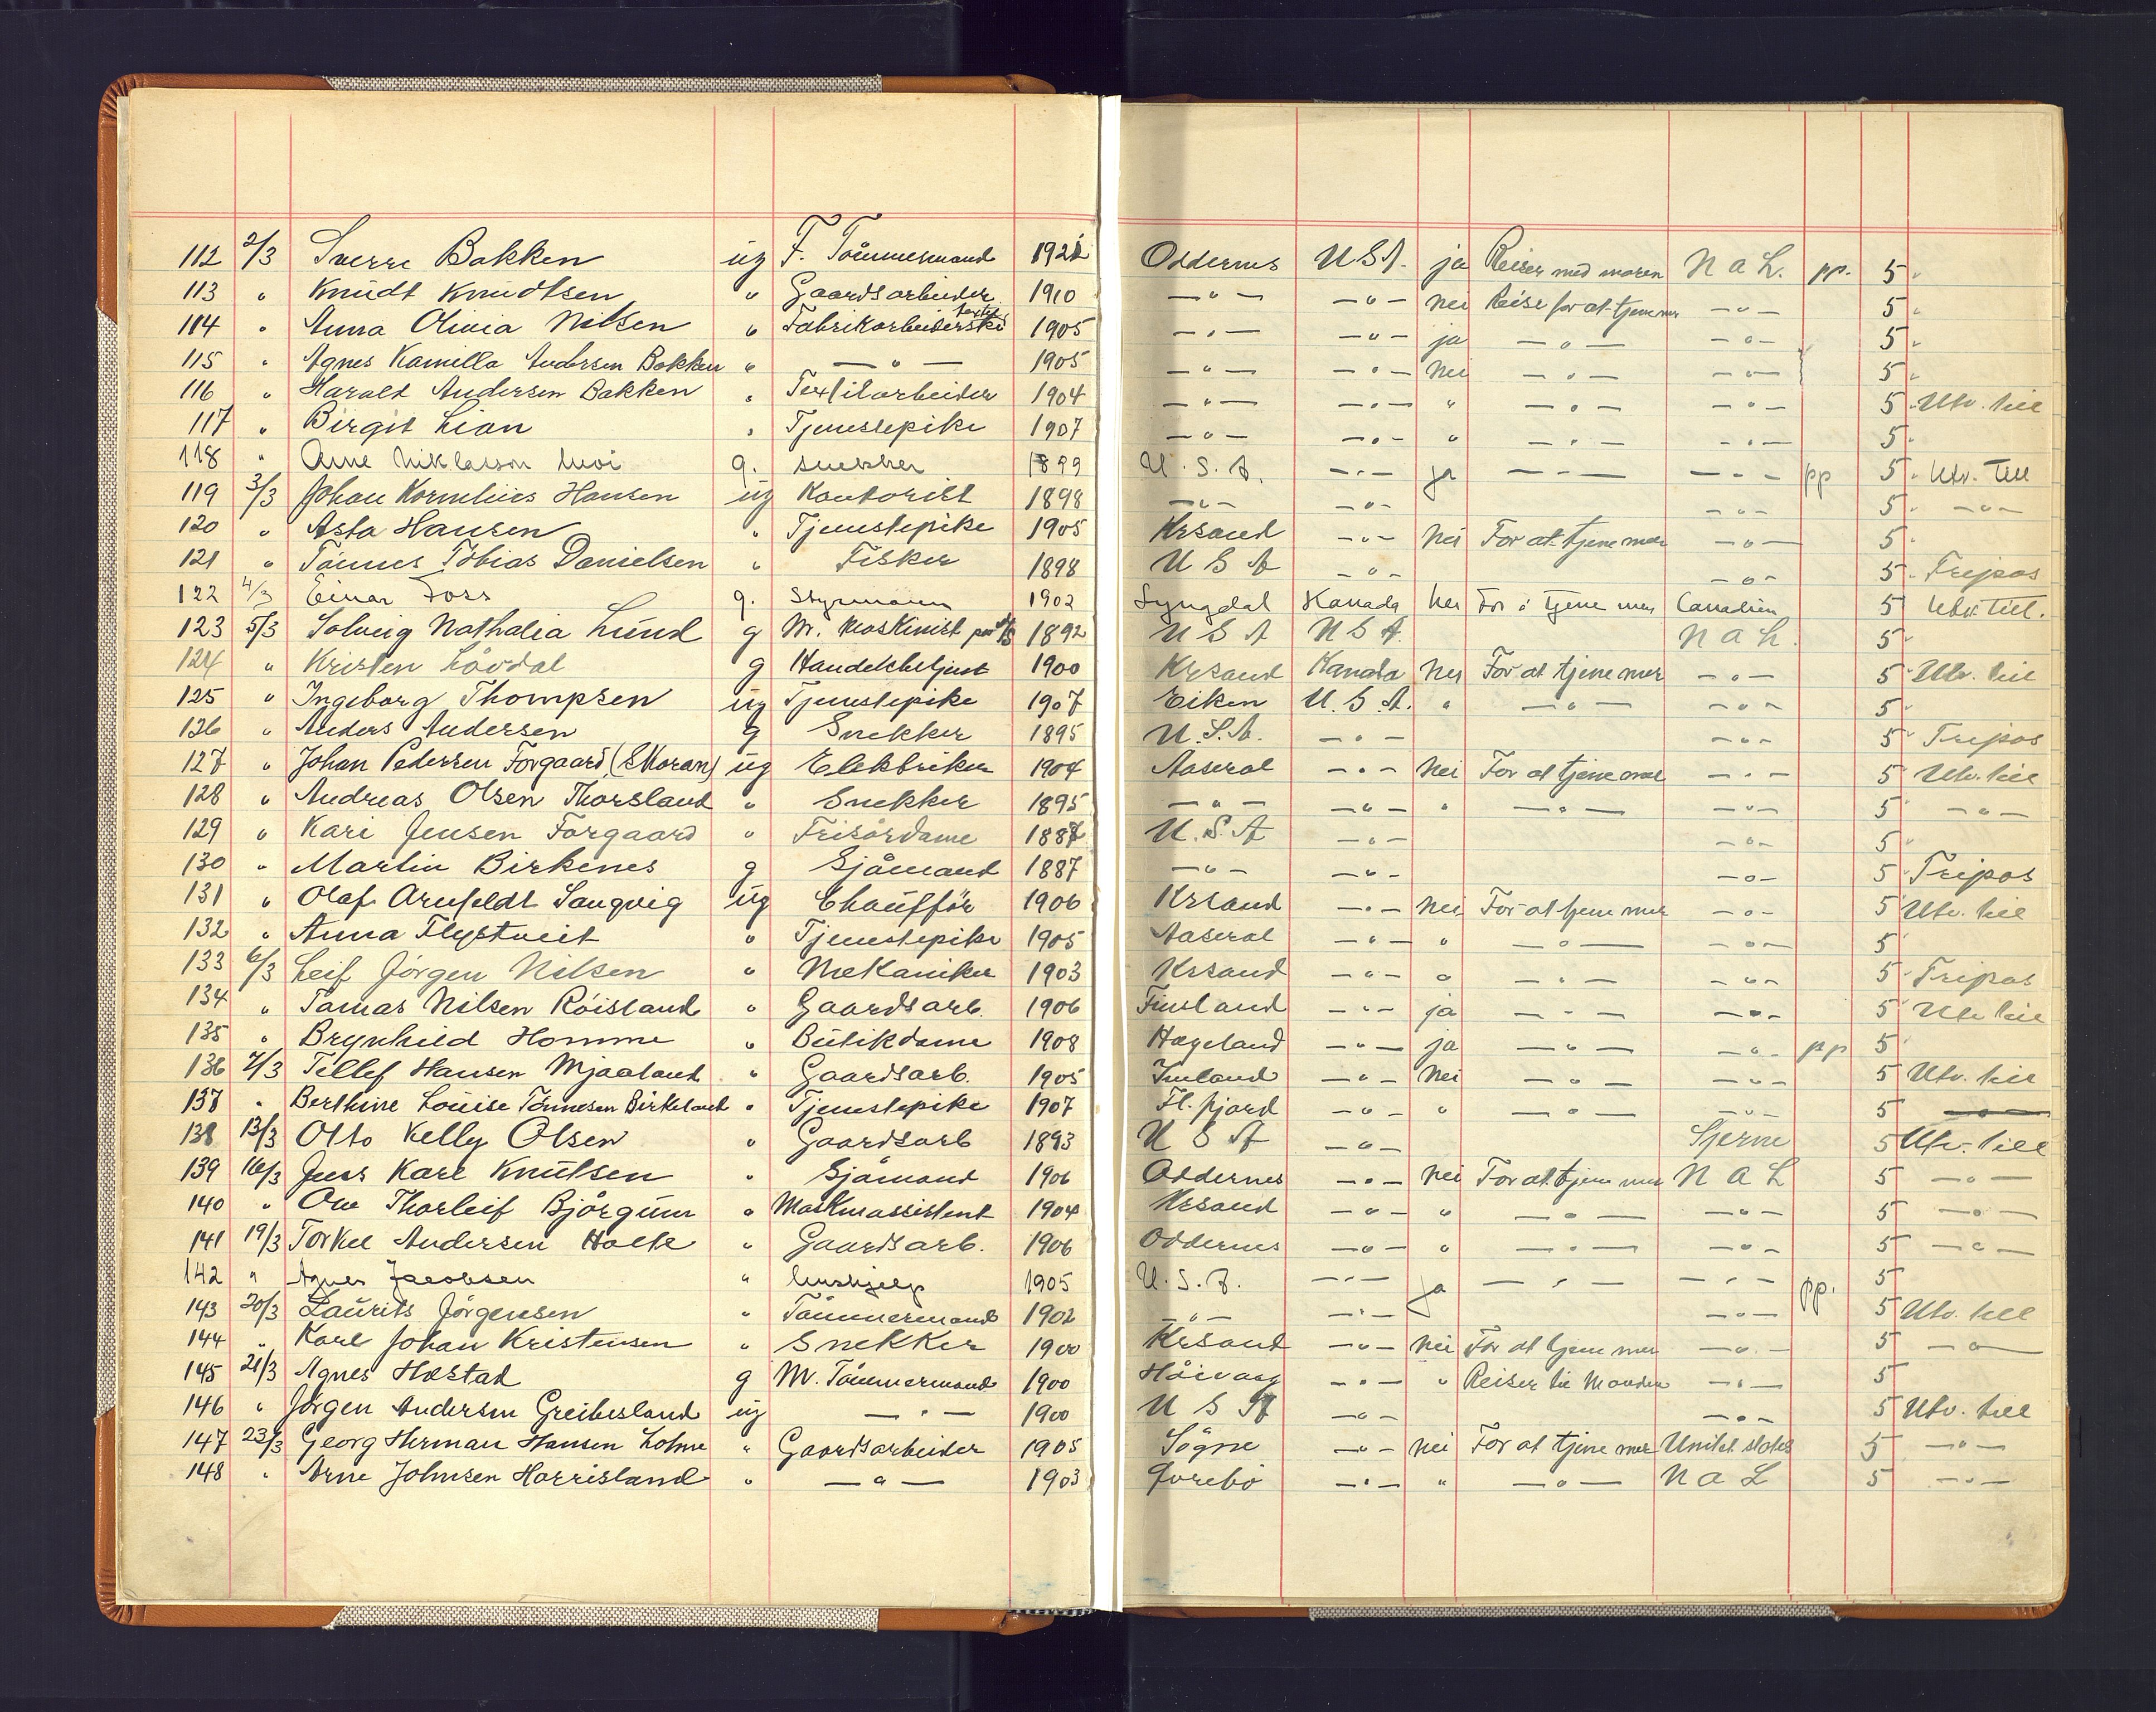 112 2/3 Sverre Bakken ug F. Tømmermand 1921 Oddernes U S A. ja Reiser med moren N a L. pp. 5 "
113 " Knudt Knudtsen " Gaardsarbeider 1910 — " — — " — nei Reise for at tjene mer — " — 5 "
114 " Anna Olivia Nilsen " Fabrikarbeiderske 1905 — " — — " — ja — " — — " — 5 "
115 " Agnes Kamilla Andersen Bakken " — " — 1905 — " — — " — nei — " — — " — 5 "
116 " Harald Andersen Bakken " Textilarbeider 1904 — " — — " — " — " — — " — 5 " Utv. till
117 " Birgit Lian " Tjenestepike 1907 — " — — " — " — " — — " — 5 "
118 " Arne Niklasson g. snekker 1899 U. S. A. — " — ja — " — — " — pp 5 " Utv. till
119 3/3 Johan Kornelius Hansen ug Kontorist 1898 — " — — " — — " — 5 " — " —
120 " Asta Hansen " Tjenestepike 1905 Krsand — " — nei For at tjene mer — " — 5 "
121 " Tønnes Tobias Danielsen " Fisker 1898 U S A — " — — " — 5 " Tripos
122 4/3 Einar Foss g. Styrmann 1902 Lyngdal Kanada nei For å tjene mer Canadien 5 Utv. till.
123 5/3 Solveig Nathalia Lund g M. Maskinist 1892 U S A U S A. N a L. 5 "
124 " Kristen Løvdal g Handelsbetjent 1900 Krsand Kanada nei For at tjene mer — " — 5 " Utv. till
125 " Ingeborg Thompsen ug Tjenestepike 1907 Eiken U. S. A. " — " — — " — 5 "
126 " Anders Andersen g Snekker 1895 U. S. A. — " — — " — 5 " Tripos
127 " Johan Pedersen Forgaard (S Moran) ug Elektriker 1904 Aaseral — " — nei For at tjene mer — " — 5 " Utv. till
128 " Andreas Olsen Thorsland " Snekker 1895 — " — — " — " — " — — " — 5 " — " —
129 " Kari Jensen Forgaard " Frisørdame 1887 U. S. A — " — — " — 5 "
130 " Martin Birkenes g Sjømand 1887 — " — — " — — " — 5 Tripos
131 " Olaf Arnfeldt Sangvig ug Chauffør 1906 Krsand — " — nei For at tjene mer — " — 5 Utv. till
132 " Anna Flystveit " Tjenestepike 1905 Aaseral — " — " — " — — " — 5 "
133 6/3 Leif Jørgen Nilsen " Mekaniker 1903 Krsand — " — " — " — — " — 5 " Tripos
134 " Tomas Nilsen Røisland " Gaardsarb. 1906 Finsland — " — ja — " — — " — 5 " Utv till
135 " Brynhild Homme " Butikdame 1908 Hægeland — " — ja — " — — " — pp 5 "
136 7/3 Tellef Hansen Mjaaland " Gaardsarb. 1905 — " — nei — " — — " — 5 Utv. till
137 " Berthine Louise Tønnesen Birkeland " Tjenestepike 1907 Fl. fjord — " — " — " — — " — 5 — " —
138 13/3 Otto Kelly Olsen " Gaardsarb 1893 U S A — " — Stjerne 5 Utv. till
139 16/3 Jens Karl Knutsen " Sjømand 1906 Oddernes — " — nei For at tjene mer N a L 5 — " —
140 " Ove Thorleif Bjørgum " Maskinassistent 1904 Krsand — " — " — " — — " — 5 — " —
141 19/3 Torkel Andersen Holte " Gaardsarb. 1906 Oddernes — " — " — " — — " — 5 — " —
142 " Agnes Jacobsen " hushjelp 1905 U. S. A. — " — ja — " — — " — pp. 5
143 20/3 Laurits Jørgensen " Tømmermand 1902 — " — — " — — " — 5 Utv. till
144 " Karl Johan Kristensen " Snekker 1900 Krsand — " — nei For at tjene mer — " — 5 — " —
145 21/3 Agnes Hæstad g M. Tømmermand 1900 Høivaag — " — " Reiser til Manden — " — 5
146 " Jørgen Andersen Greibesland ug — " — 1900 U S A — " — — " — 5 Utv. till
147 23/3 Georg Herman Hansen Lohne " Gaardsarbeider 1905 Søgne — " — nei For at tjene mer United states 5 — " —
148 " Arne Johnsen Harrisland " — " — 1903 — " — " — " — N a L 5 — " —